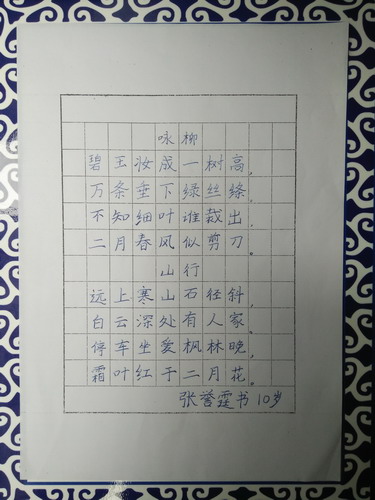 咏柳
碧玉妆成一树高,
万条垂下绿丝绦。
不知细叶谁裁出,
二月春风似剪刀。
山行
远上寒山石径斜,
白云深处有人家。
停车坐爱枫林晚,
霜叶红于二月花。
张誉霆书 10岁